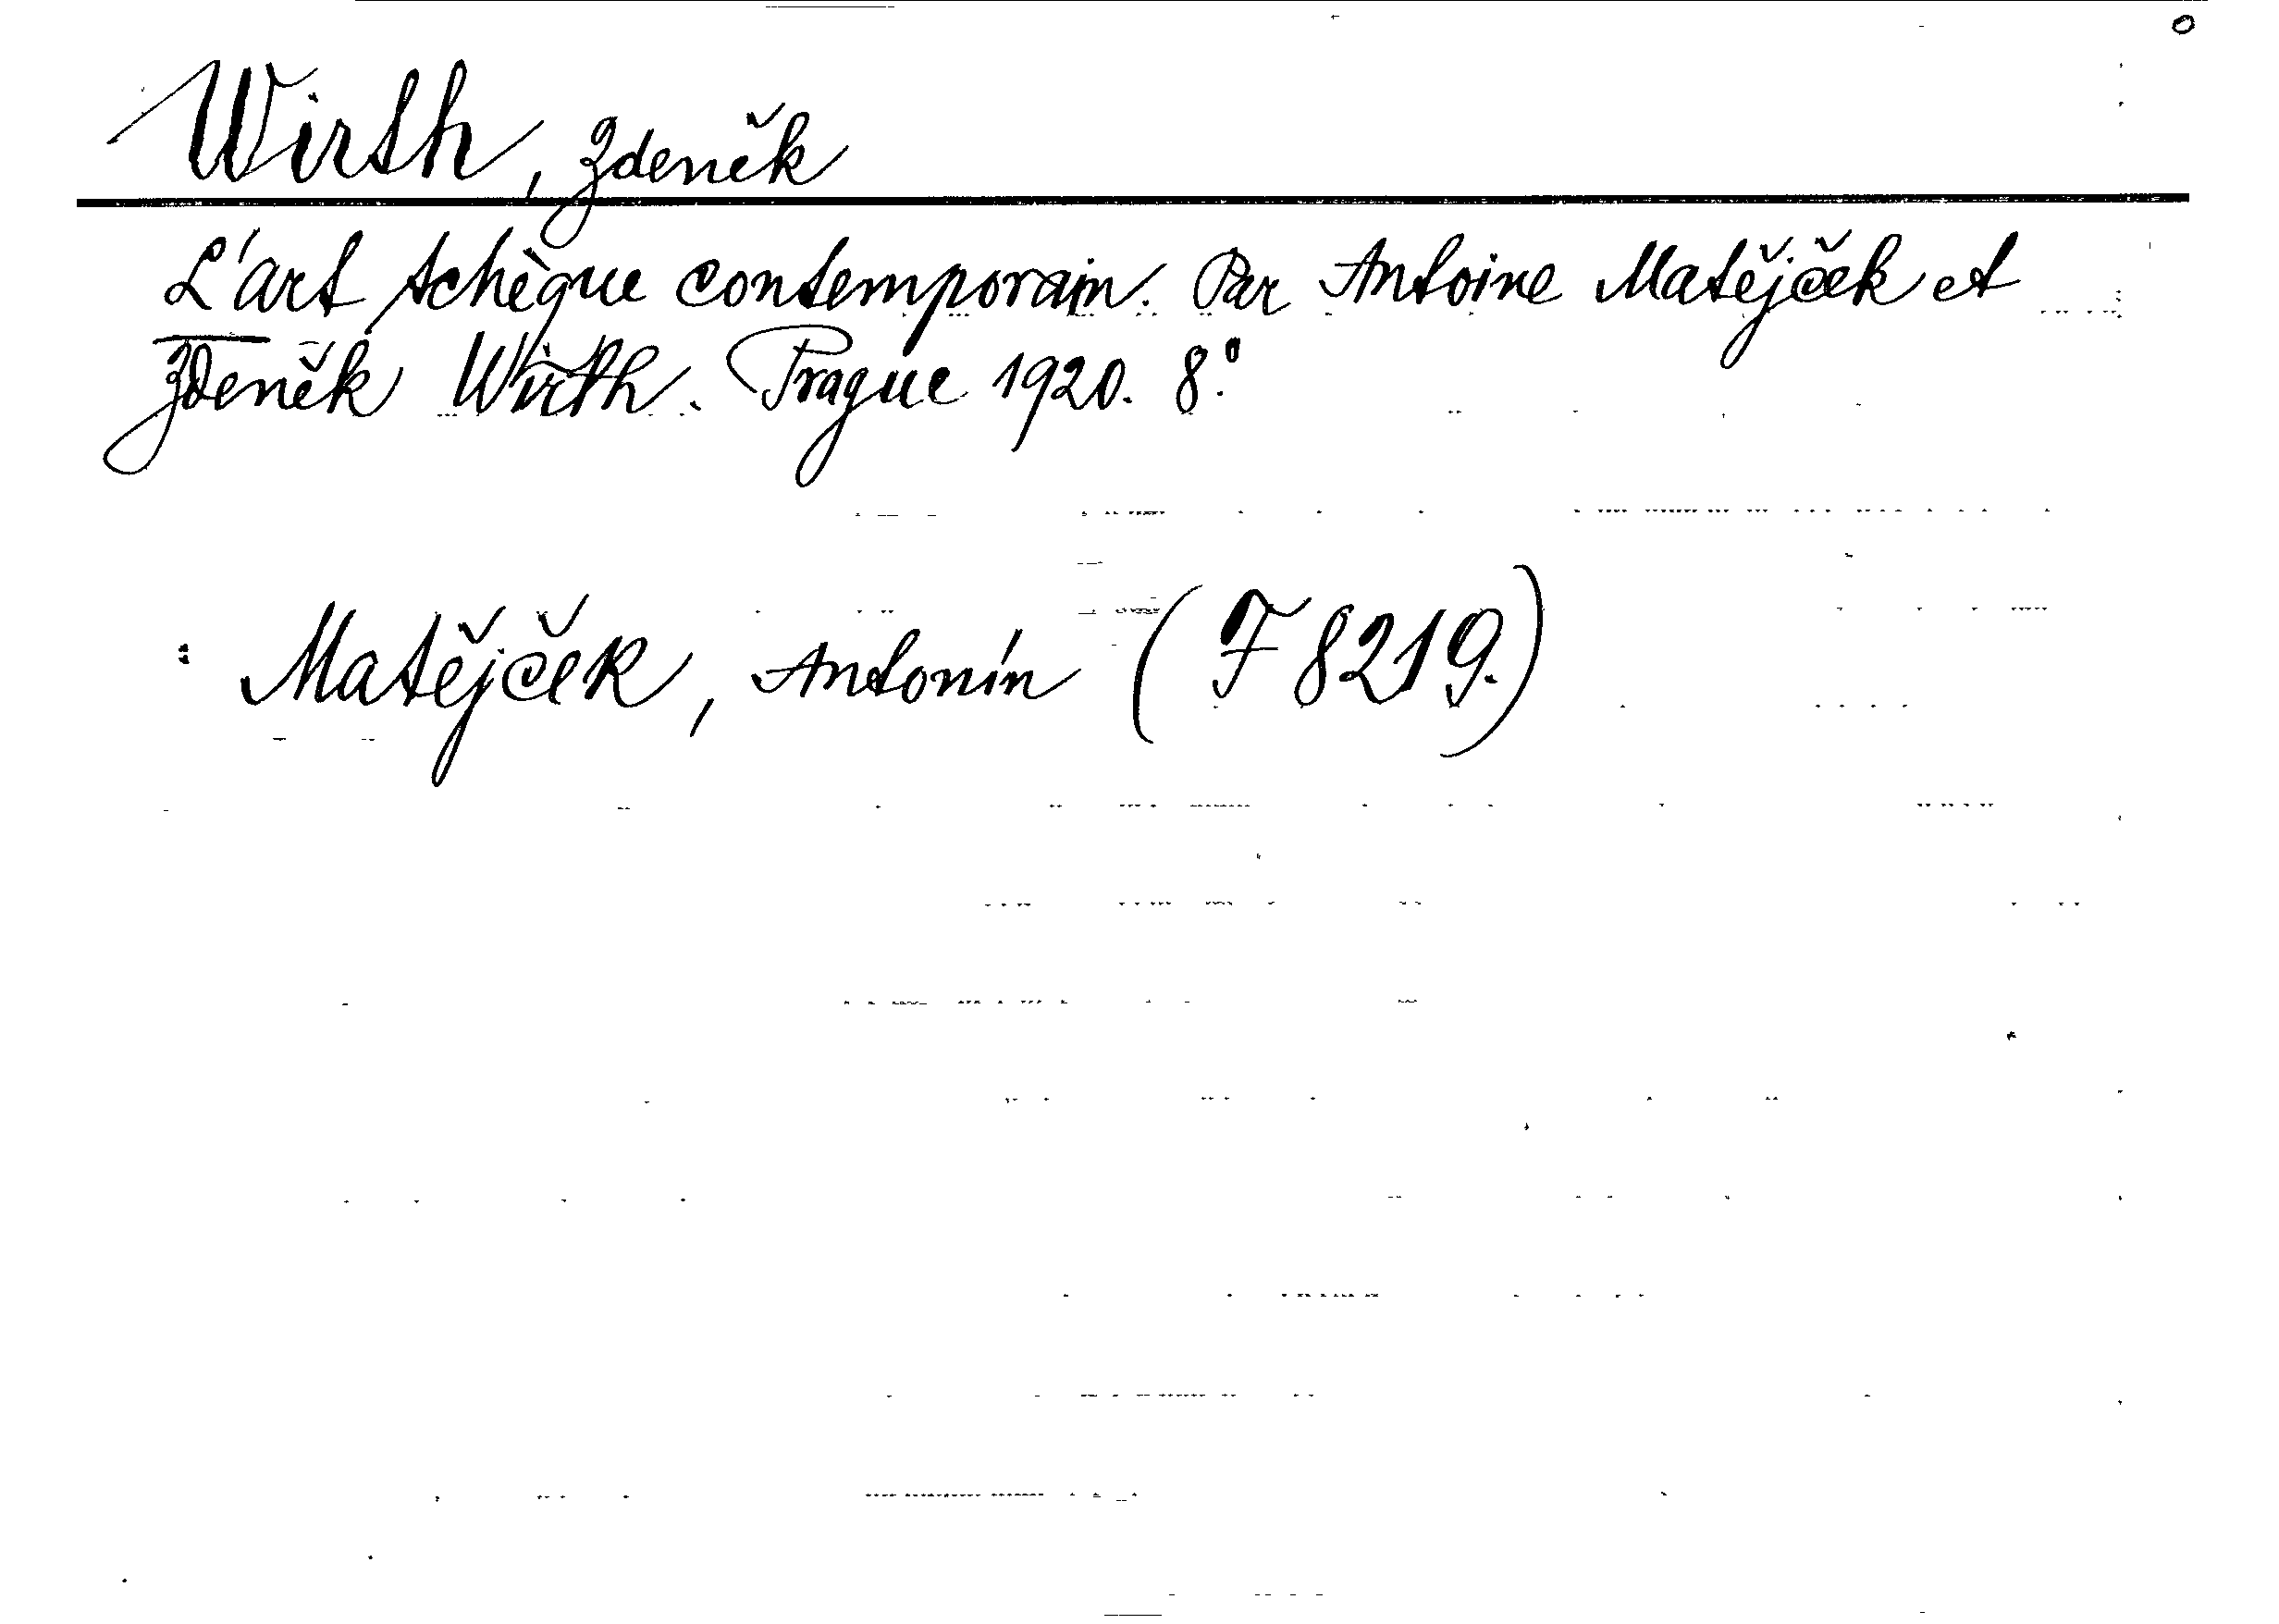 Wirth, Zdeněk
L'art tchèque contemporain. Par Antoine Matějček et
Zdeněk Wirth. Prague 1920. 8.°
: Matějček, Antonín (F 8219.)